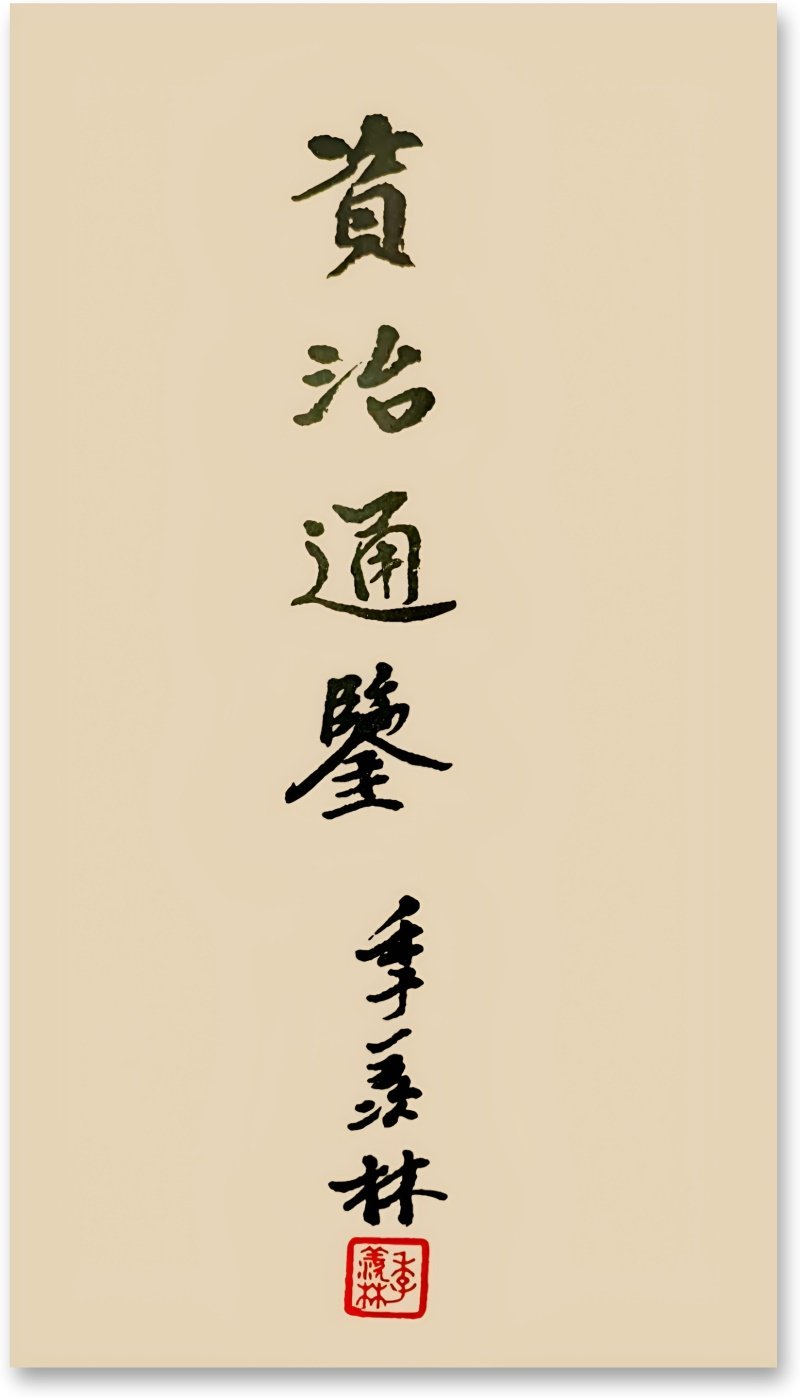 資治通鑒
季羨林
季羨林